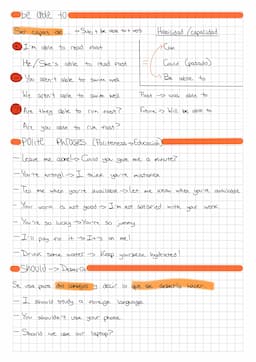 be able to
Ser capaz de → Subj + be able to + verb
Habilidad / capacidad
I'm able to read most
He/She's able to read most
You aren't able to swim well
We aren't able to swim well
Are they able to run most?
Are you able to run most?
Can
Could (pasado)
Be able to
Past → was able to
Future → Will be able to
POLITE PHRASES (Politeness → Educación)
- Leave me alone! → Could you give me a minute?
- You're wrong! → I think you're mistaken
- Tell me when you're available → Let me know when you're available
- Your work is not good → I'm not satisfied with your work
- You're so lucky → You're so
- I'll pay for it → It's on me!
- Drink some water → Keep yourselves hydrated!
SHOULD →
Se usa para dar consejos y decir lo que se debería hacer
- I should study a foreign language
- You shouldn't use your phone
- Should we use our laptop?